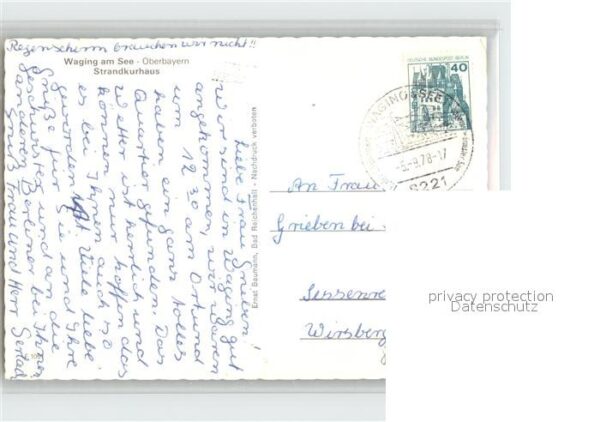 Regenschirm brauchen wir nicht!!
Waging am See - Oberbayern
Strandkurhaus
Liebe Frau Grieben!
Wir sind in Waging gut
angekommen, wir waren
um 12.30 am Ort und
haben ein ganz tolles
Quartier gefunden. Das
Wetter ist herrlich und
können nur hoffen das
es bei Ihnen auch so
geworden ist. Viele liebe
Grüße für Sie und Ihre
Geschwister und an die
anderen Berliner bei Ihnen
Frau und Herr
Ernst Baumann, Bad Reichenhall - Nachdruck verboten
DEUTSCHE BUNDESPOST BERLIN
40
WAGING A SEE
-8.78-17
8221
An Frau
Grieben bei
Wirsberg
privacy protection
Datenschutz